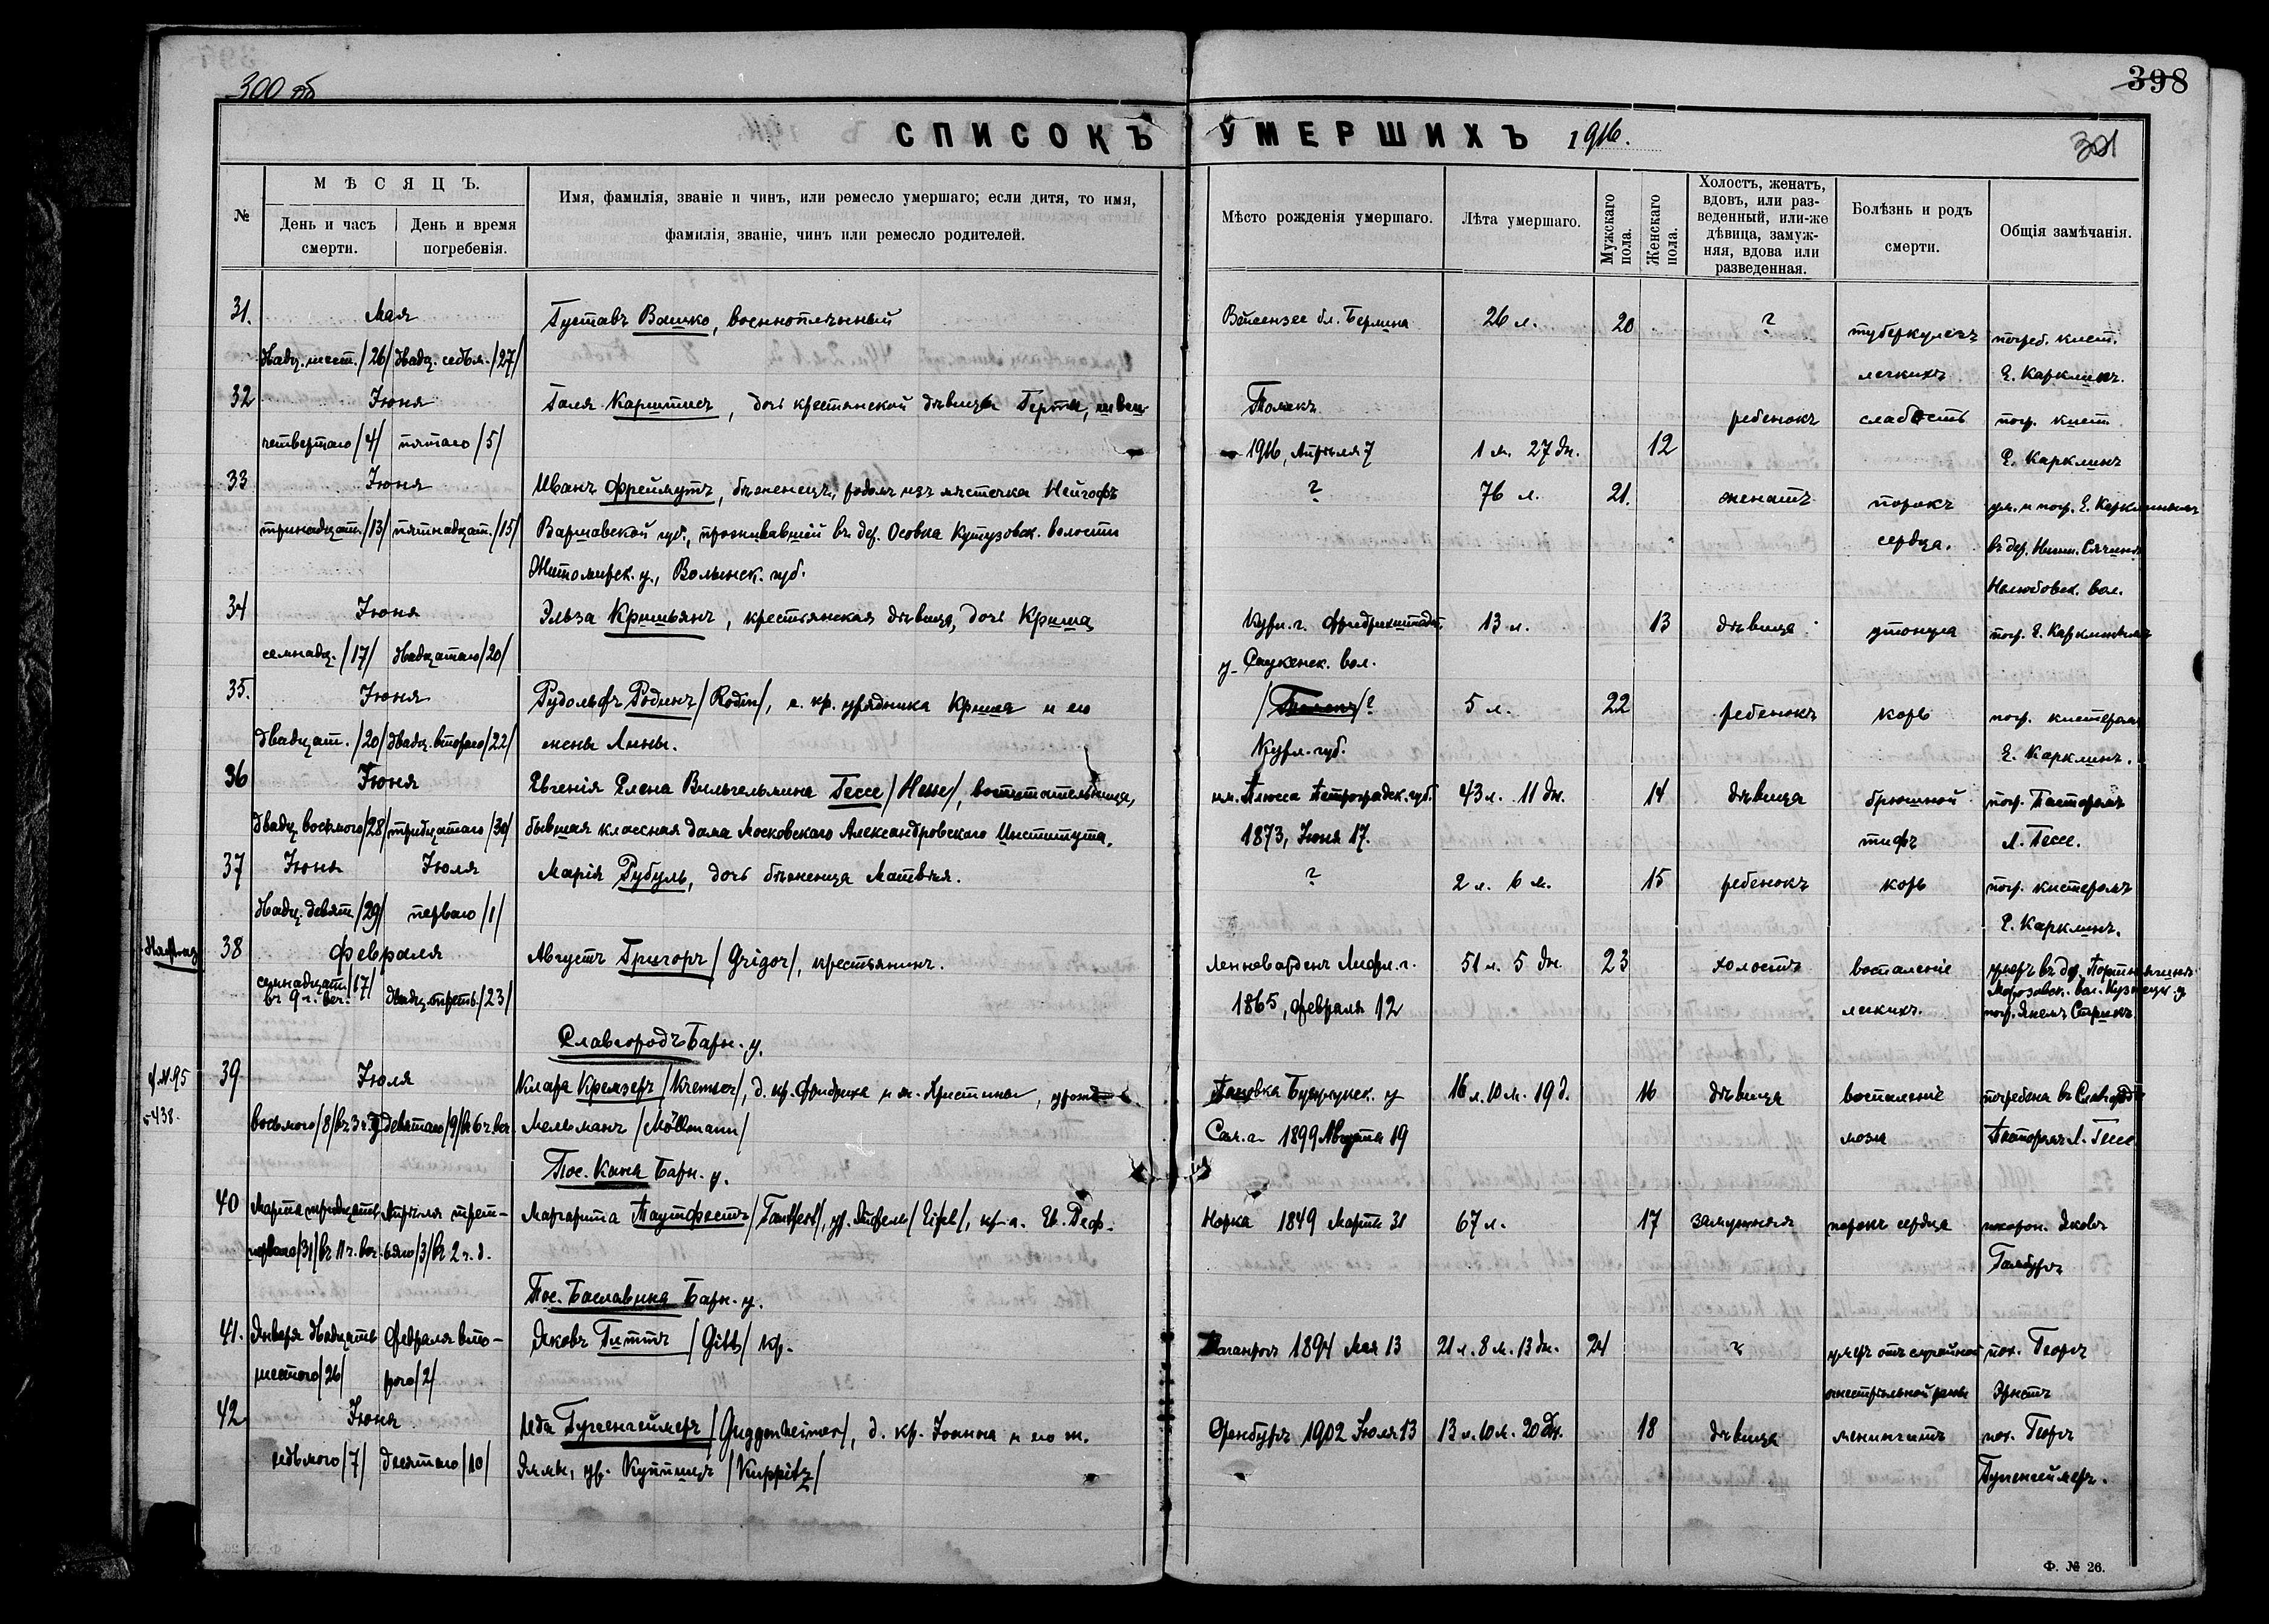 300 об
398
СПИСОКЪ УМЕРШИХЪ 1916.
301
№
МѢСЯЦЪ.
День и часъ смерти.
День и время погребенія.
Имя, фамилія, званіе и чинъ, или ремесло умершаго; если дитя, то имя,
фамилія, званіе, чинъ или ремесло родителей.
Мѣсто рожденія умершаго.
Лѣта умершаго.
Мужскаго пола.
Женскаго пола.
Холостъ, женатъ,
вдовъ, или раз-
веденный, или-же
дѣвица, замуж-
няя, вдова или
разведенная.
Болѣзнь и родъ
смерти.
Общія замѣчанія.
31. Мая Густавъ Вашко, военноплѣнный Вейсензее бл. Берлина 26 л. 20 ? туберкулезъ погреб. кист.
двадц. шест. /26/ двадц. седьм. /27/ легкихъ Е. Карклинъ.
32 Іюня Галя, дочь крестьянской дѣвицы Герты Томскъ ребенокъ слабость погр. кист.
четвертаго /4/ пятаго /5/ 1916, Апрѣля 7 1 м. 27 дн. 12 Е. Карклинъ
33 Іюня Иванъ Фреймутъ, бѣженецъ, родомъ изъ мѣстечка Нейгофъ ? 76 л. 21. женатъ порокъ ум. и погр. Е. Карклинымъ
тринадцат. /13/ пятнадцат. /15/ Варшавской губ., проживавшій въ дер. Осовка Кутузовск. волости сердца. въ дер.
Житомирск. у., Волынск. губ. Нелюбовск. вол.
34 Іюня Эльза Кришьянъ, крестьянская дѣвица, дочь Криша Курл. г. Фридрихштадт. 13 л. 13 дѣвица утонула погр. Е. Карклинымъ
семнадц. /17/ двадцатаго /20/ у. Саукенск. вол.
35. Іюня Рудольфъ Родинъ /Rodin/, с. кр. урядника Криша и его ? 5 л. 22 ребенокъ корь погр. кистеромъ
двадцат. /20/ двадц. второго /22/ жены Лины. Курл. губ. Е. Карклинъ.
36 Іюня Евгенія Елена Вильгельмина Гессе /Hesse/, воспитательница, им. Плюсса Петроградск. губ. 43 л. 11 дн. 14 дѣвица брюшной погр. Пасторомъ
двадц. восьмого /28/ тридцатаго /30/ бывшая классная дама Московскаго Александровскаго Института. 1873, Іюня 17. тифъ Л. Гессе.
37 Іюня Іюля Марія Рубуль, дочь бѣженца Матвѣя. ? 2 л. 6 м. 15 ребенокъ корь погр. кистеромъ
двадц. девят. /29/ перваго /1/ Е. Карклинъ.
38 Февраля Августъ Григоръ /Grigor/, крестьянинъ. Ленневарденъ Лифл. г. 51 л. 5 дн. 23 холостъ воспаленіе умеръ въ дер.
семнадцат. /17/ въ 9 ч. веч. двадц. треть. /23/ 1865, Февраля 12 легкихъ. вол. Кузнецк. у. погр.
Славгородъ Барн. у.
438.
39 Іюля Клара Кремзеръ /Kremser/, д. кр. Фридриха и ж. Христины, урожд. Бузулукск. у 16 л. 10 м. 19 д. 16 дѣвица воспаленіе погребена въ Славгородѣ
восьмого /8/ въ 3 ч. д. девятаго /9/ въ 6 ч. веч. Мельманъ /Möllmann/ Сам. г. 1899 Августа 19 мозга Пасторомъ Л. Гессе
Пос. Кана Барн. у.
40 Марта тридцать Апрѣля трет- Маргарита Таутфестъ /Tautfest/, ур. Эйфель /Eifel/, кр-а. Ев. Реф. Норка 1849 Марта 31 67 л. 17 замужняя порокъ сердца похорон. Яковъ
перваго /31/ въ 11 ч. веч. ьяго /3/ въ 2 ч. д. Гамбургъ
Пос. Баславина Барн. у.
41. Января двадцать Февраля вто- Яковъ Гиттъ /Gitt/ кр. Таганрог 1894 Мая 13 21 л. 8 м. 13 дн. 24 ? умеръ отъ случайной пох. Георгъ
шестого /26/ рого /2/ огнестрѣльной раны Эрнстъ
42 Іюня Ида Гугенгеймеръ /Guggenheimer/, д. кр. Іоанна и его ж. Оренбургъ 1902 Іюля 13 13 л. 10 м. 20 дн. 18 дѣвица менингитъ пох. Георгъ
седьмого /7/ десятаго /10/ Эммы, ур. Куппицъ /Kuppitz/ Гугенгеймеръ.
Ф. № 26.